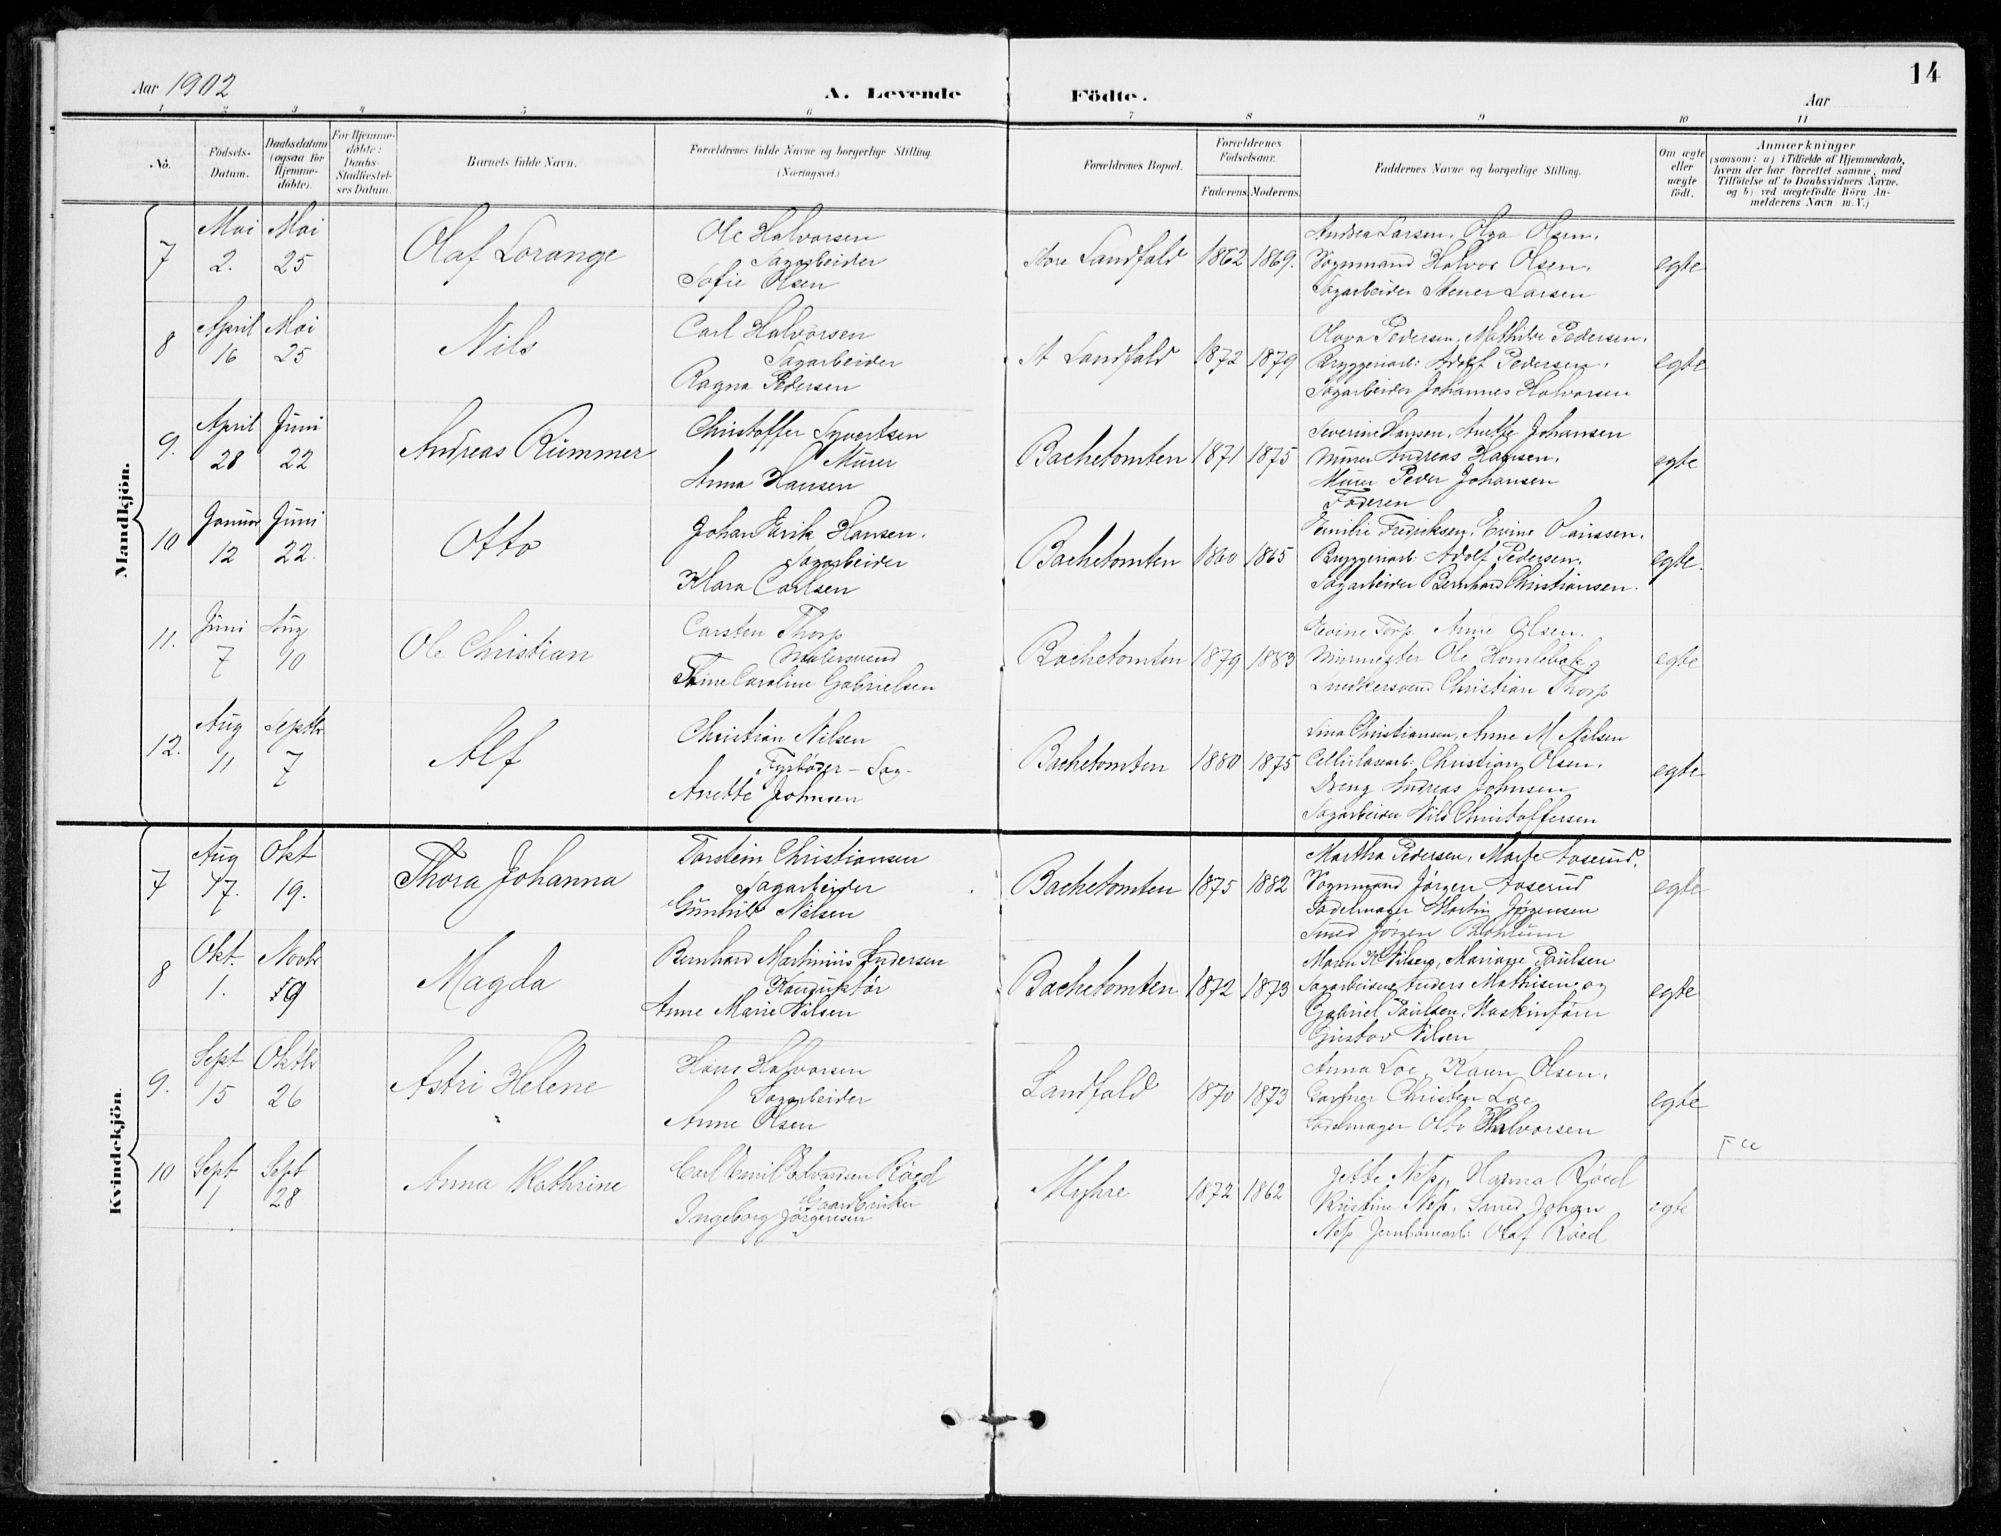 14
Aar 1902
A. Levende Födte.
Aar
1 2 3 4 5 6 7 8 9 10 11
No.
Födsels-
Datum.
Daabsdatum
(ogsaa for
Hjemme-
döbte).
For Hjemme-
döbte:
Daabs-
Stadfæstel-
ses Datum.
Barnets fulde Navn.
Forældrenes fulde Navne og borgerlige Stilling
(Næringsvei.)
Forældrenes Bopæl.
Forældrenes
Födselsaar.
Faderens. Moderens.
Faddernes Navne og borgerlige Stilling.
Om ægte
eller
uægte
födt.
Anmærkninger
(saasom: a) i Tilfælde af Hjemmedaab,
hvem der har forrettet samme, med
Tilföielse af to Daabsvidners Navne.
og b) ved uægtefödte Börn An-
melderens Navn m. V.)
Mandkjön.
7
Mai
2.
Mai
25
Olaf Lorange
Ole Halvorsen
Sagarbeider
Sofie Olsen
Store Landfald
1862
1869.
Andrea Larsen, Olga Olsen,
Vognmand Halvor Olsen,
Sagarbeider Stener Larsen
egte
8
April
16
Mai
25
Nils
Carl Halvorsen
Sagarbeider
Ragna Pedersen
St Landfald
1872
1879
Olava Pedersen, Mathilde Pedersen,
Bryggeriarb: Adolf Pedersen,
Sagarbeider Johannes Halvorsen
egte
9.
April
28
Juni
22
Andreas Rummer
Christoffer Syvertsen
Murer
Anna Hansen
Bachetomten
1871
1875
Severine Hansen, Anette Johansen
Murer Andreas Hansen,
Murer Peder Johansen
Faderen
egte
10
Januar
12
Juni
22.
Otto
Johan Erik Hansen,
Sagarbeider
Klara Carlsen
Bachetomten
1860
1865
Emilie Fredriksen, Evine Hanssen,
Bryggeriarb Adolf Pedersen,
Sagarbeider Bernhard Christiansen.
egte.
11.
Juni
7
Aug
10
Ole Christian
Carsten Thorp
Malersvend
Trine Caroline Gabrielsen
Bachetomten
1879
1883
Evine Torp, Anne Olsen,
Murmester Ole Homlebæk,
Snedkersvend Christian Thorp
egte
12.
Aug
11
Septbr
7
Alf
Christian Nilsen
Fyrbøder – Sag-
Anette Johnsen
Bachetomten
1880
1875
Sina Christiansen, Anne M Nilsen
Cellulosearb: Christian Olsen,
Dreng Andreas Johnsen
Sagarbeider Nils Christoffersen
egte
Kvindekjön.
7
Aug
17.
Okt
19.
Thora Johanna
Torstein Christiansen
Sagarbeider
Gunhild Nilsen
Bachetomten
1875
1882
Martha Pedersen, Marte Aaserud,
Vognmand Jørgen Aaserud
Sadelmager Martin Jørgensen
Smed Jørgen
egte
8
Okt.
1.
Novbr
9
Magda
Bernhard Martinius Andersen
Konduktør
Anne Marie Nilsen
Bachetomten
1872
1873
Maren K Nilsen, Mariane Paulsen
Sagarbeider Anders Mathisen og
Gabriel Paulsen, Maskinfører
Gustav Nilsen
egte
9.
Sept
15
Oktbr
26
Astri Helene
Hans Halvorsen
Sagarbeider
Anne Olsen
Landfald
1870
1873
Anna Loe, Karen Olsen,
Gartner Christen Loe,
Sadelmager Otto Halvorsen
egte
10
Sept
1
Sept
28
Anna Kathrine
Carl Emil Edvardsen Røed
Gaardbruker
Ingeborg Jørgensen
Myhre
1872
1862
Jette Næss, Hanna Røed
Kristine Næss, Smed Johan
Næss Jernbanearb: Olaf Røed
egte